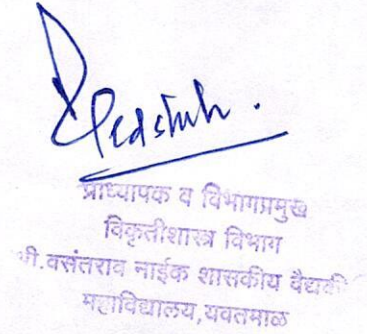 प्राध्यापक व विभागप्रमुख
विकृतीशास्त्र विभाग
वसंतराव नाईक शासकीय वैद्यकी
महाविद्यालय, यवतमाळ